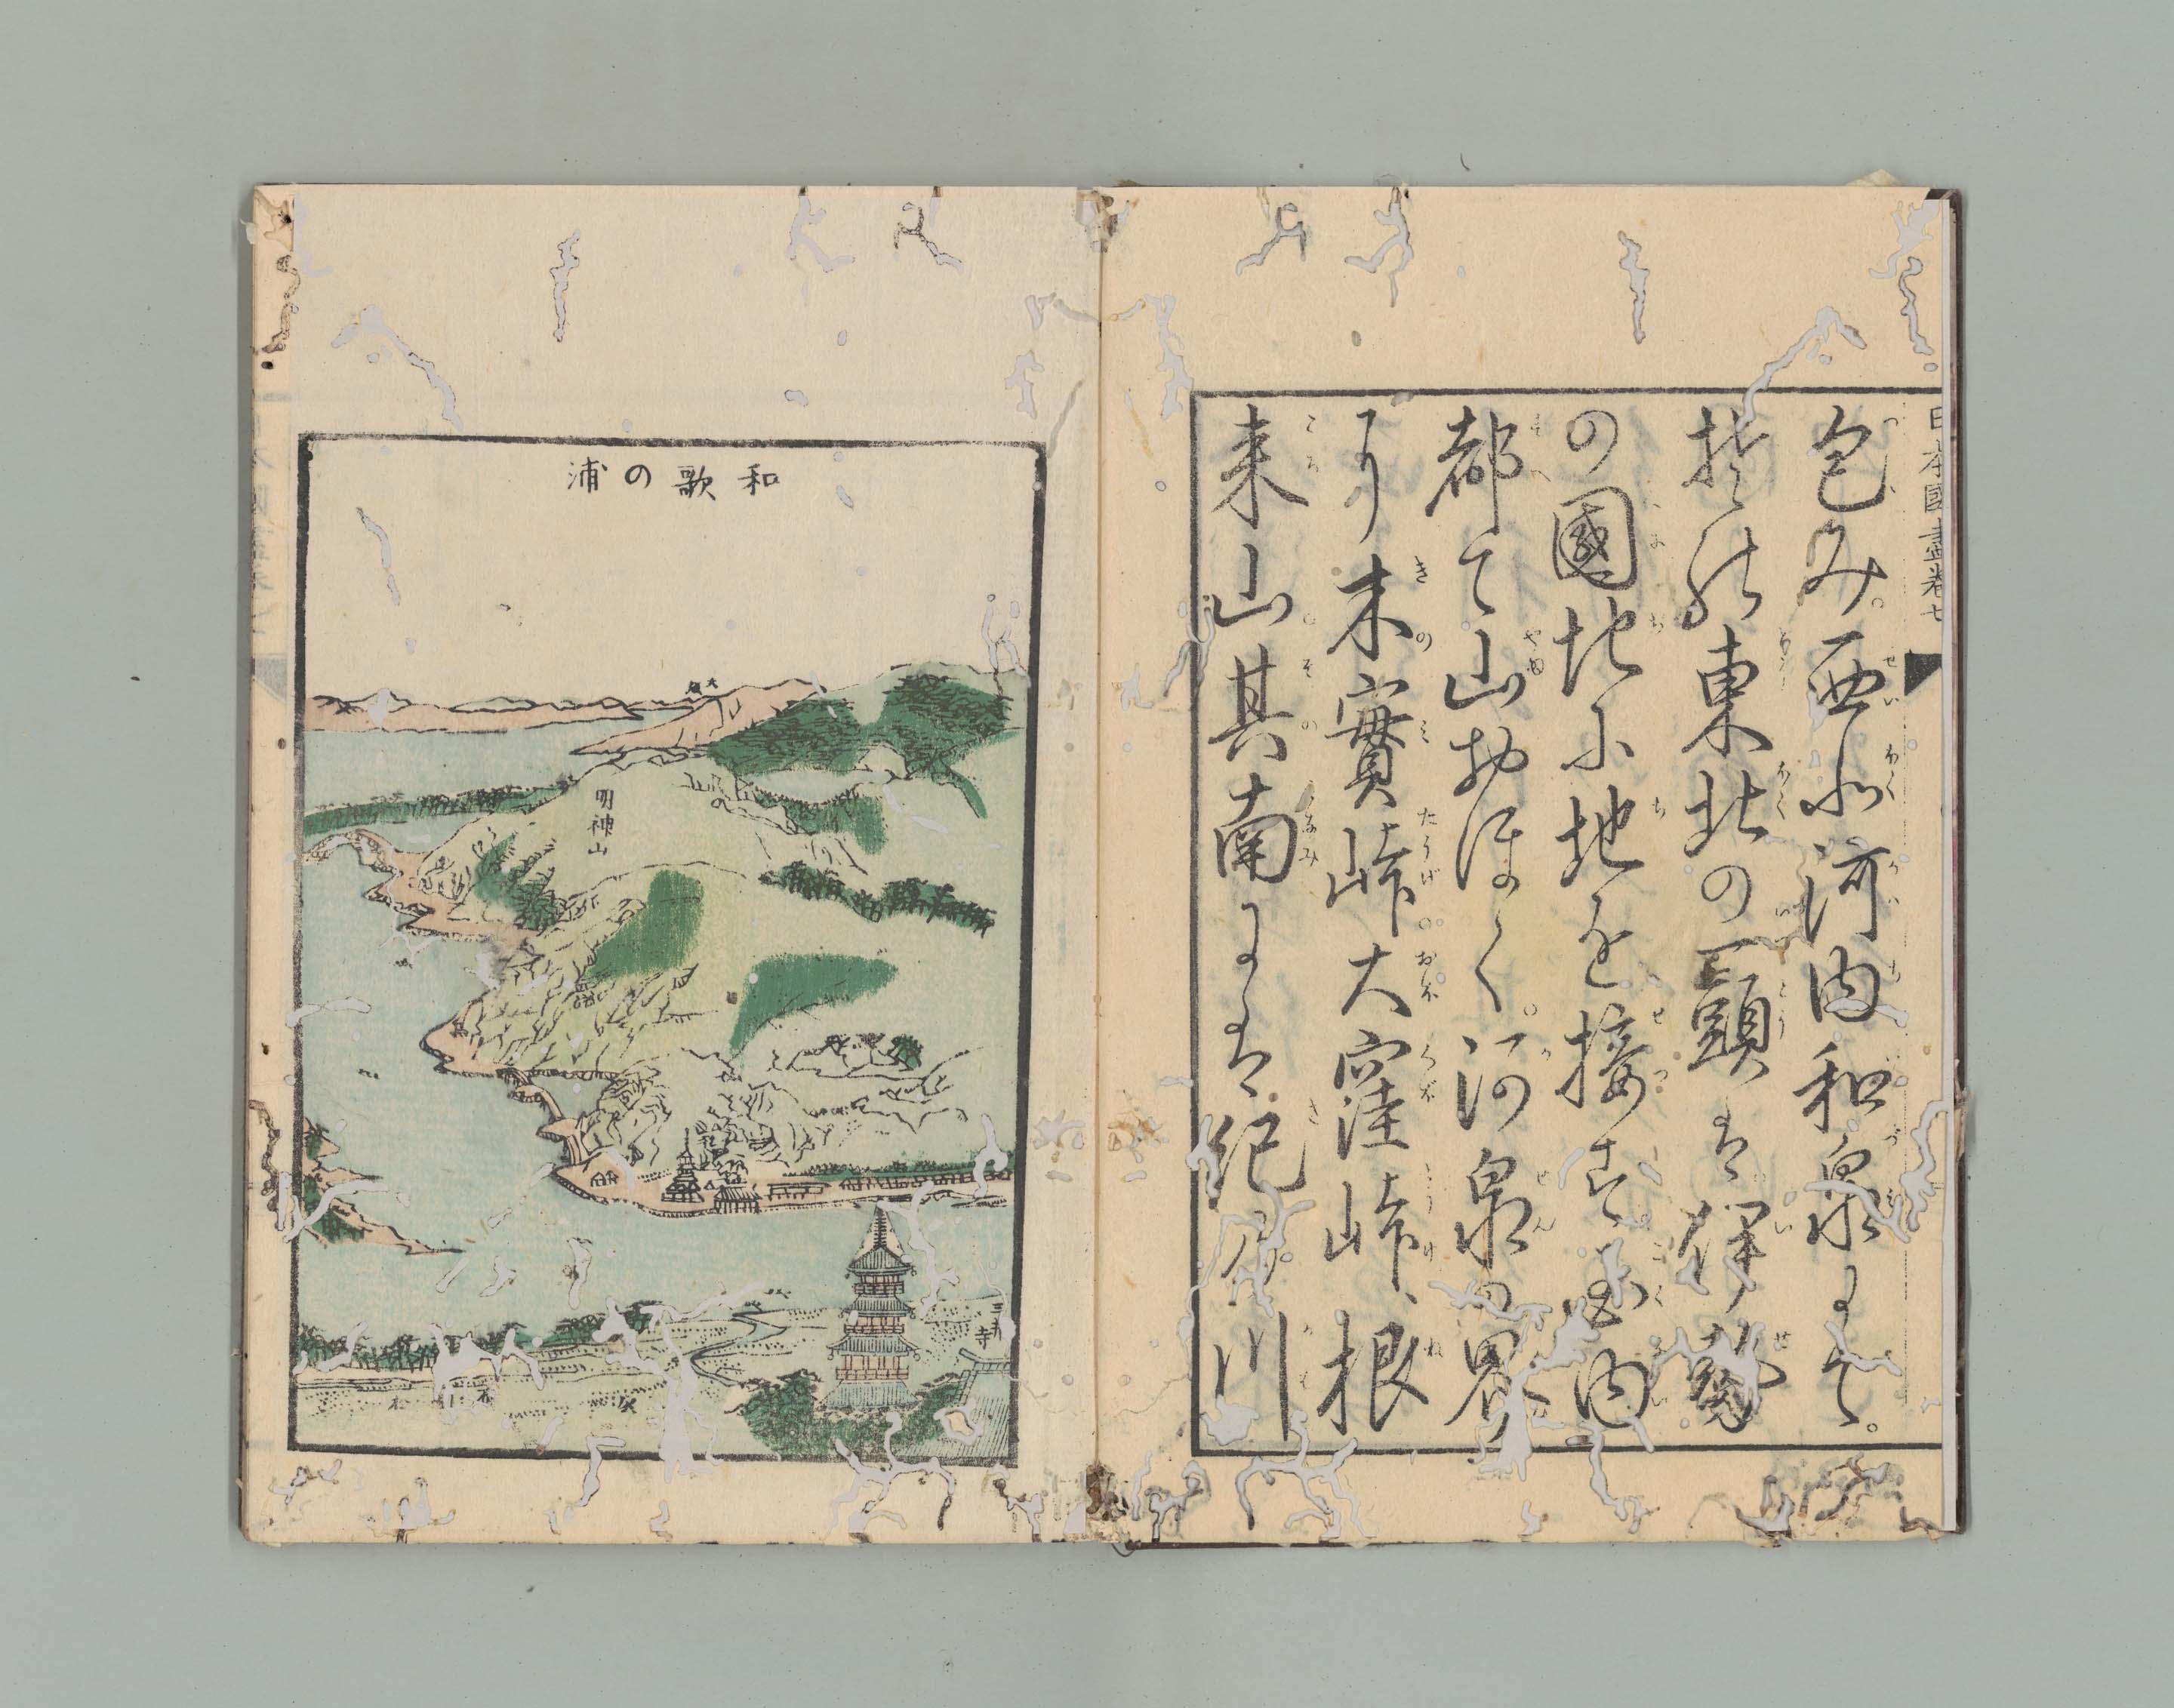 日本國盡巻七
包み。西北河内和泉にて。
東北の一頭は伊勢
の國地に地を接す。國内
都て山おほく。河泉の界
より木實峠。大窪峠、根
来山其南には紀の川
和歌の浦
明神山